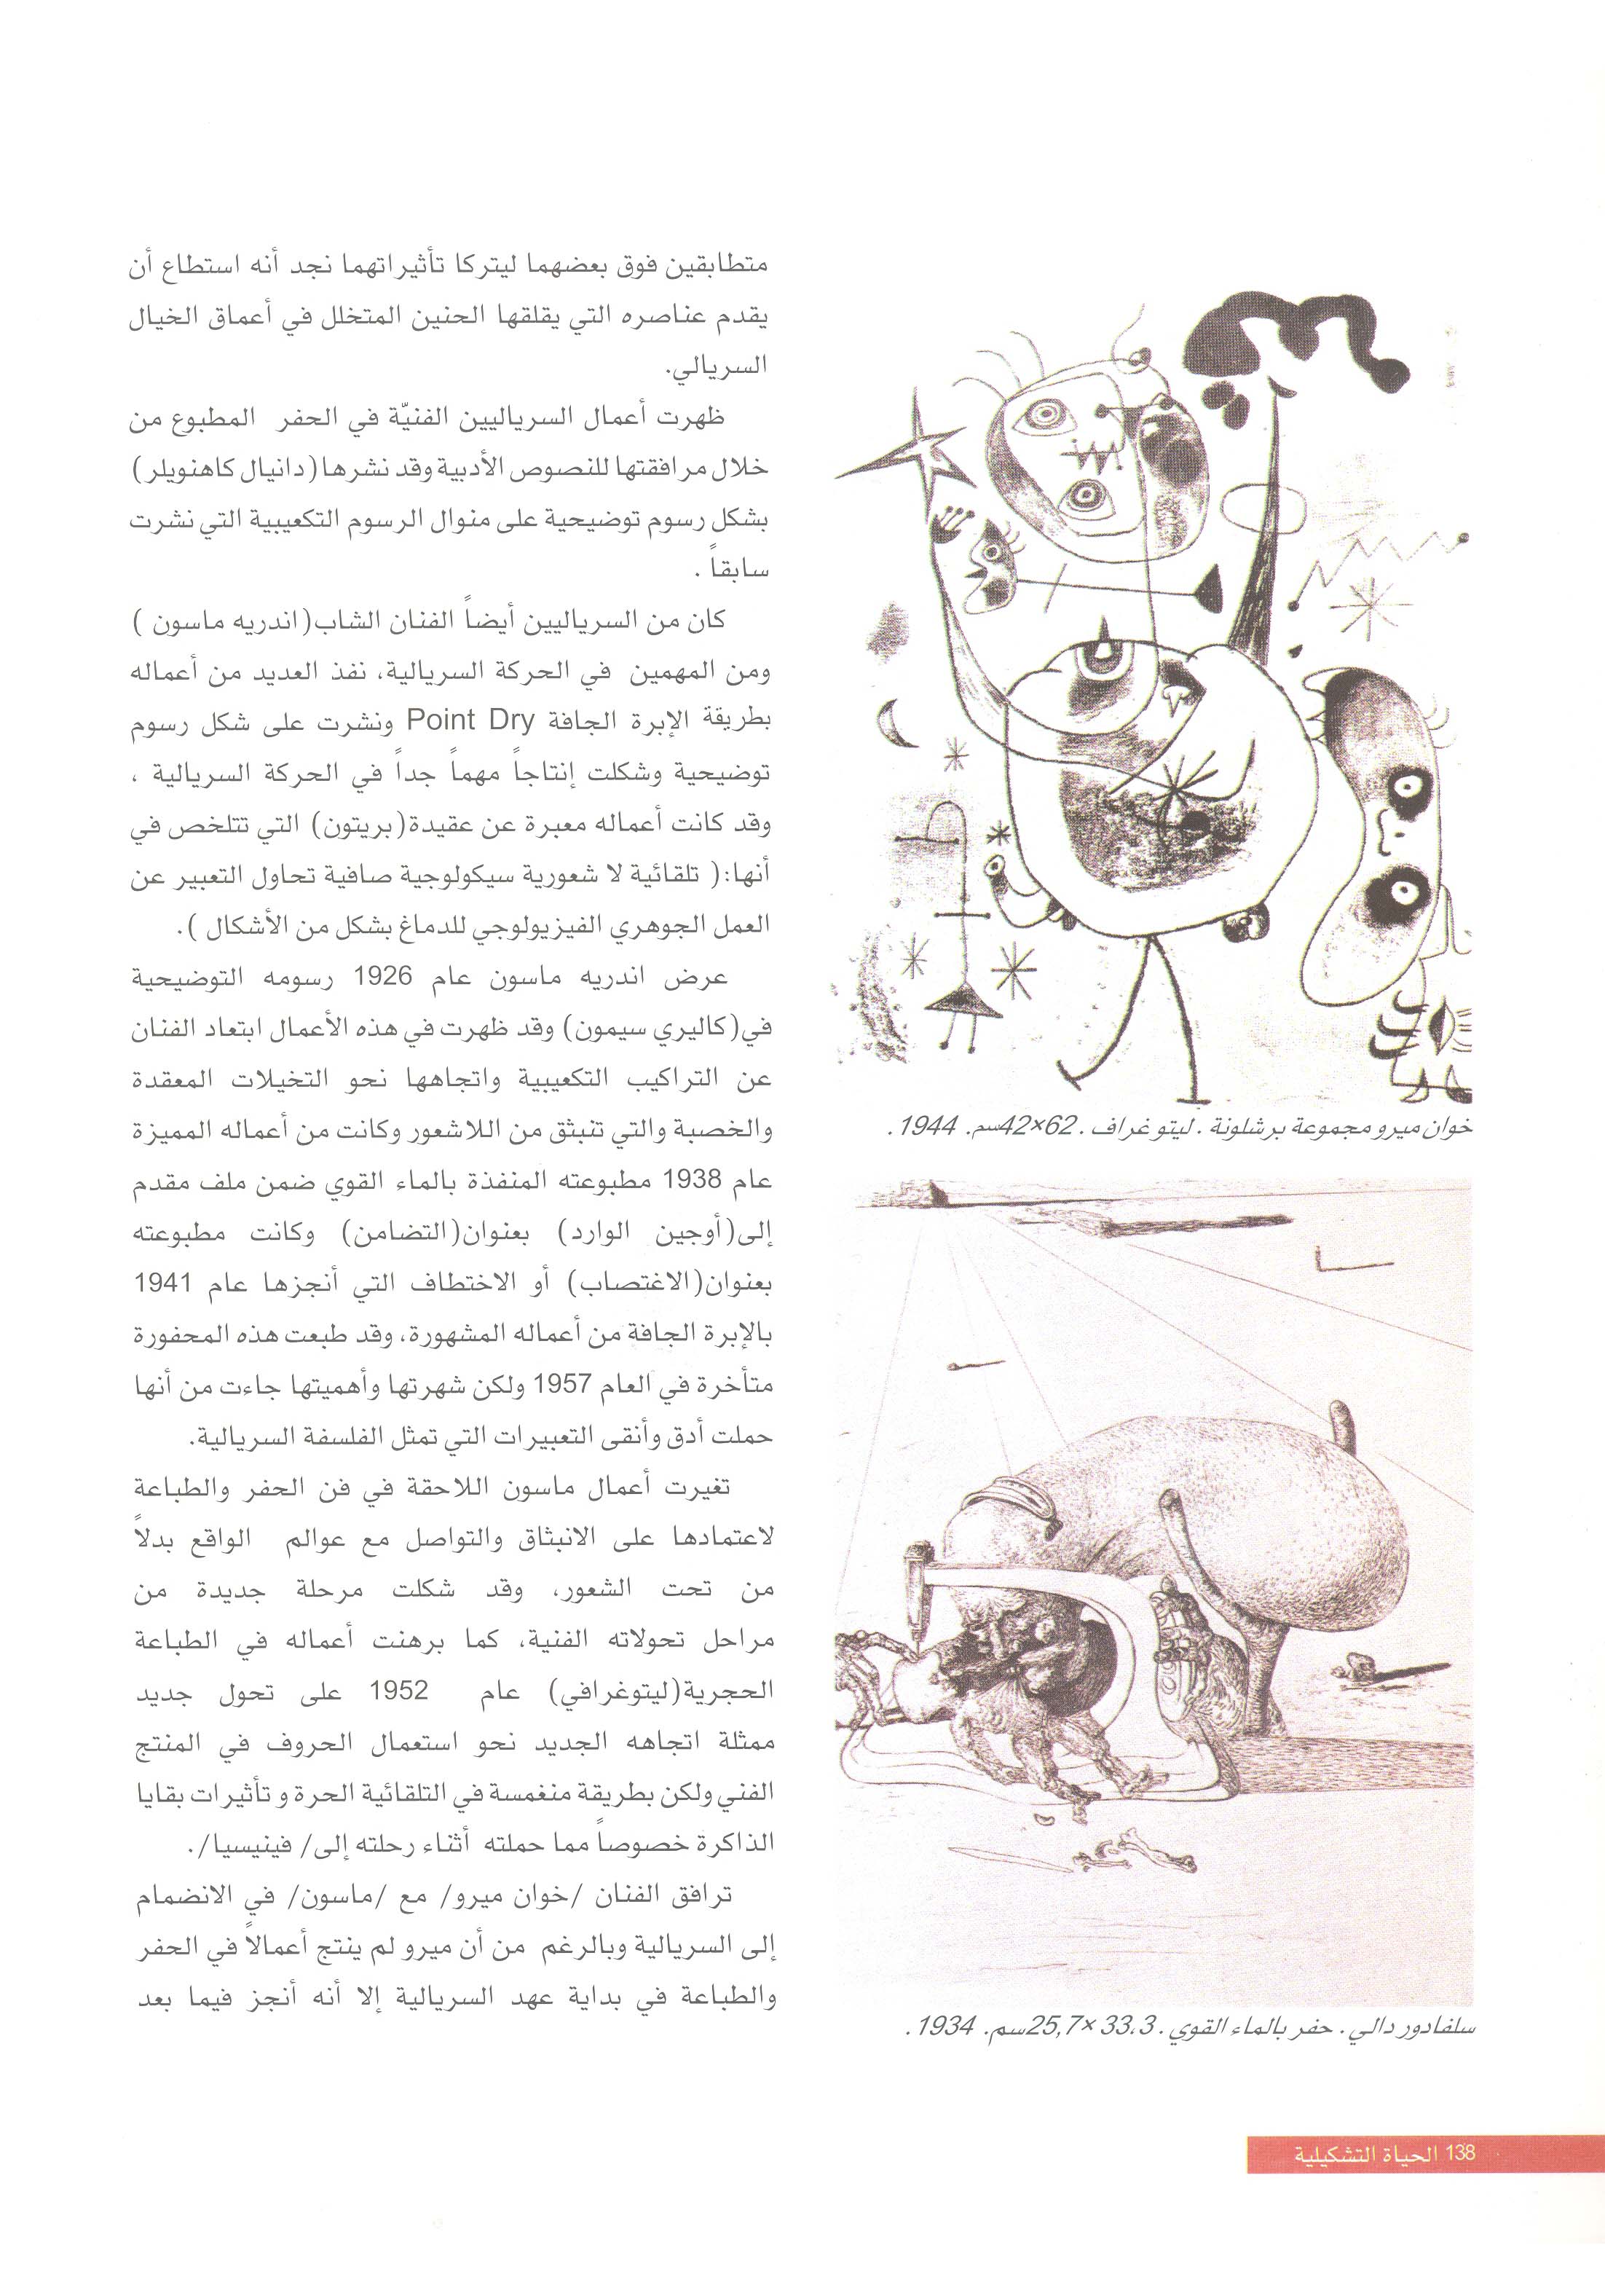 متطابقين فوق بعضهما ليتركا تأثيراتهما نجد أنه استطاع أن
يقدم عناصره التي يقلقها الحنين المتخلل في أعماق الخيال
السريالي.
ظهرت أعمال السرياليين الفنيّة في الحفر المطبوع من
خلال مرافقتها للنصوص الأدبية وقد نشرها (دانيال كاهنويلر)
بشكل رسوم توضيحية على منوال الرسوم التكعيبية التي نشرت
سابقاً .
كان من السرياليين أيضاً الفنان الشاب (اندريه ماسون )
ومن المهمين في الحركة السريالية، نفذ العديد من أعماله
بطريقة الإبرة الجافة Point Dry ونشرت على شكل رسوم
توضيحية وشكلت إنتاجاً مهماً جداً في الحركة السريالية ،
وقد كانت أعماله معبرة عن عقيدة (بريتون) التي تتلخص في
أنها: ( تلقائية لا شعورية سيكولوجية صافية تحاول التعبير عن
العمل الجوهري الفيزيولوجي للدماغ بشكل من الأشكال ).
عرض اندريه ماسون عام 1926 رسومه التوضيحية
في (كاليري سيمون) وقد ظهرت في هذه الأعمال ابتعاد الفنان
عن التراكيب التكعيبية واتجاهها نحو التخيلات المعقدة
والخصبة والتي تنبثق من اللاشعور وكانت من أعماله المميزة
عام 1938 مطبوعته المنفذة بالماء القوي ضمن ملف مقدم
إلى (أوجين الوارد) بعنوان (التضامن) وكانت مطبوعته
بعنوان (الاغتصاب) أو الاختطاف التي أنجزها عام 1941
بالإبرة الجافة من أعماله المشهورة، وقد طبعت هذه المحفورة
متأخرة في العام 1957 ولكن شهرتها وأهميتها جاءت من أنها
حملت أدق وأنقى التعبيرات التي تمثل الفلسفة السريالية.
تغيرت أعمال ماسون اللاحقة في فن الحفر والطباعة
لاعتمادها على الانبثاق والتواصل مع عوالم الواقع بدلاً
من تحت الشعور، وقد شكلت مرحلة جديدة من
مراحل تحولاته الفنية، كما برهنت أعماله في الطباعة
الحجرية (ليتوغرافي) عام 1952 على تحول جديد
ممثلة اتجاهه الجديد نحو استعمال الحروف في المنتج
الفني ولكن بطريقة منغمسة في التلقائية الحرة و تأثيرات بقايا
الذاكرة خصوصاً مما حملته أثناء رحلته إلى / فينيسيا/.
ترافق الفنان /خوان ميرو/ مع /ماسون/ في الانضمام
إلى السريالية وبالرغم من أن ميرو لم ينتج أعمالاً في الحفر
والطباعة في بداية عهد السريالية إلا أنه أنجز فيما بعد
خوان ميرو مجموعة برشلونة . ليتو غراف . 62×42سم. 1944 .
سلفادور دالي . حفر بالماء القوي . 33،3 ×25,7سم. 1934 .
138 الحياة التشكيلية